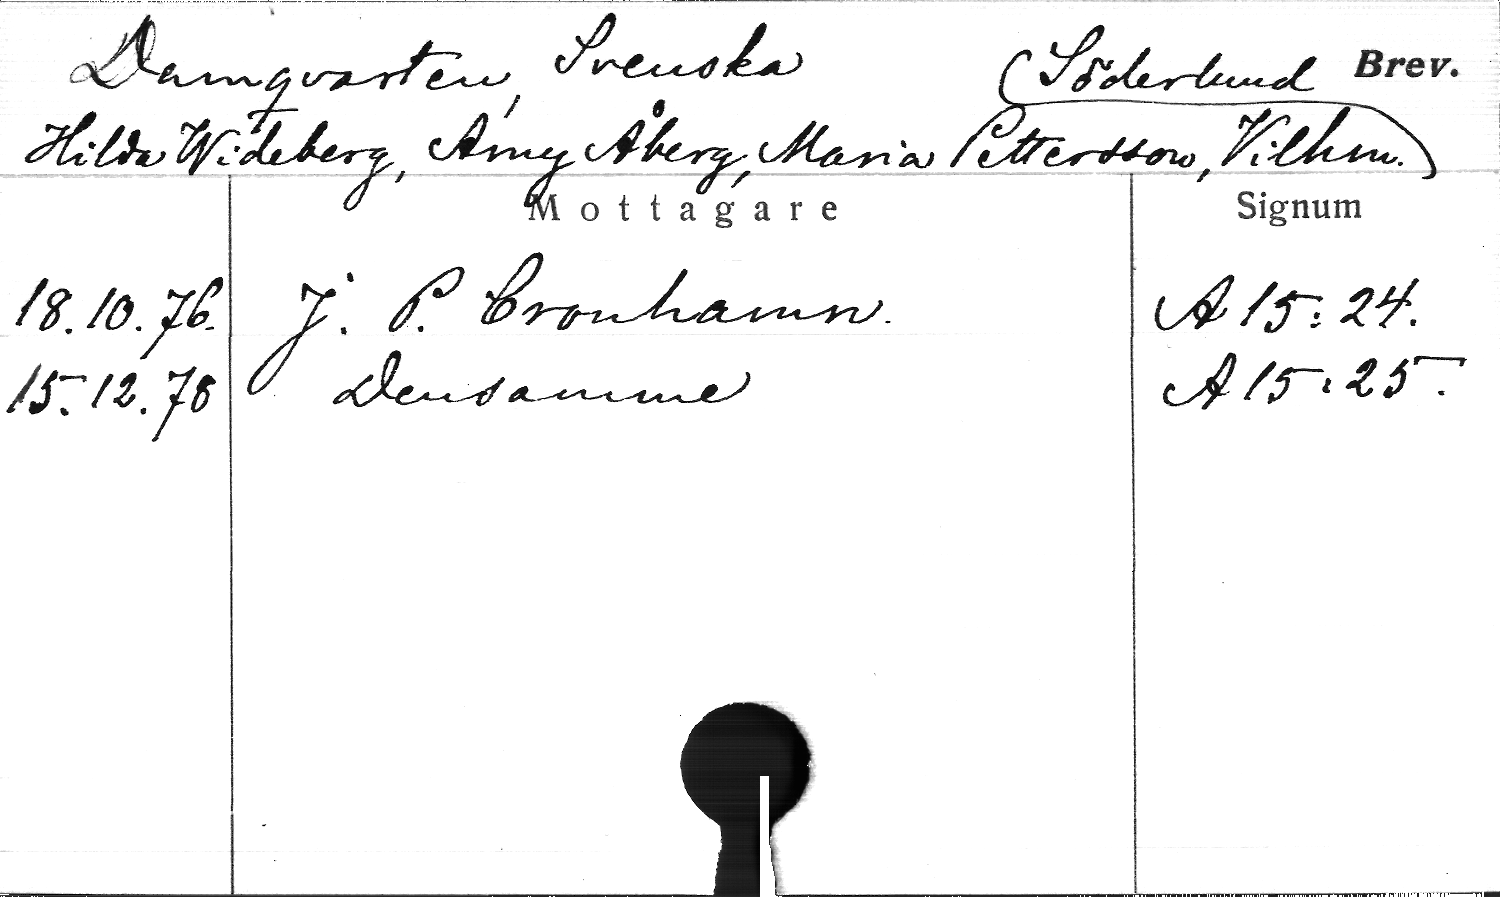 Damqvartten, Svenska (Söderlund Brev.
Hilda Wideberg, Amy Åberg, Maria Pettersson, Vilhm.)
Mottagare Signum
18.10.76. J. P. Cronhamn. A 15: 24.
15.12.78 Densamme A 15: 25.